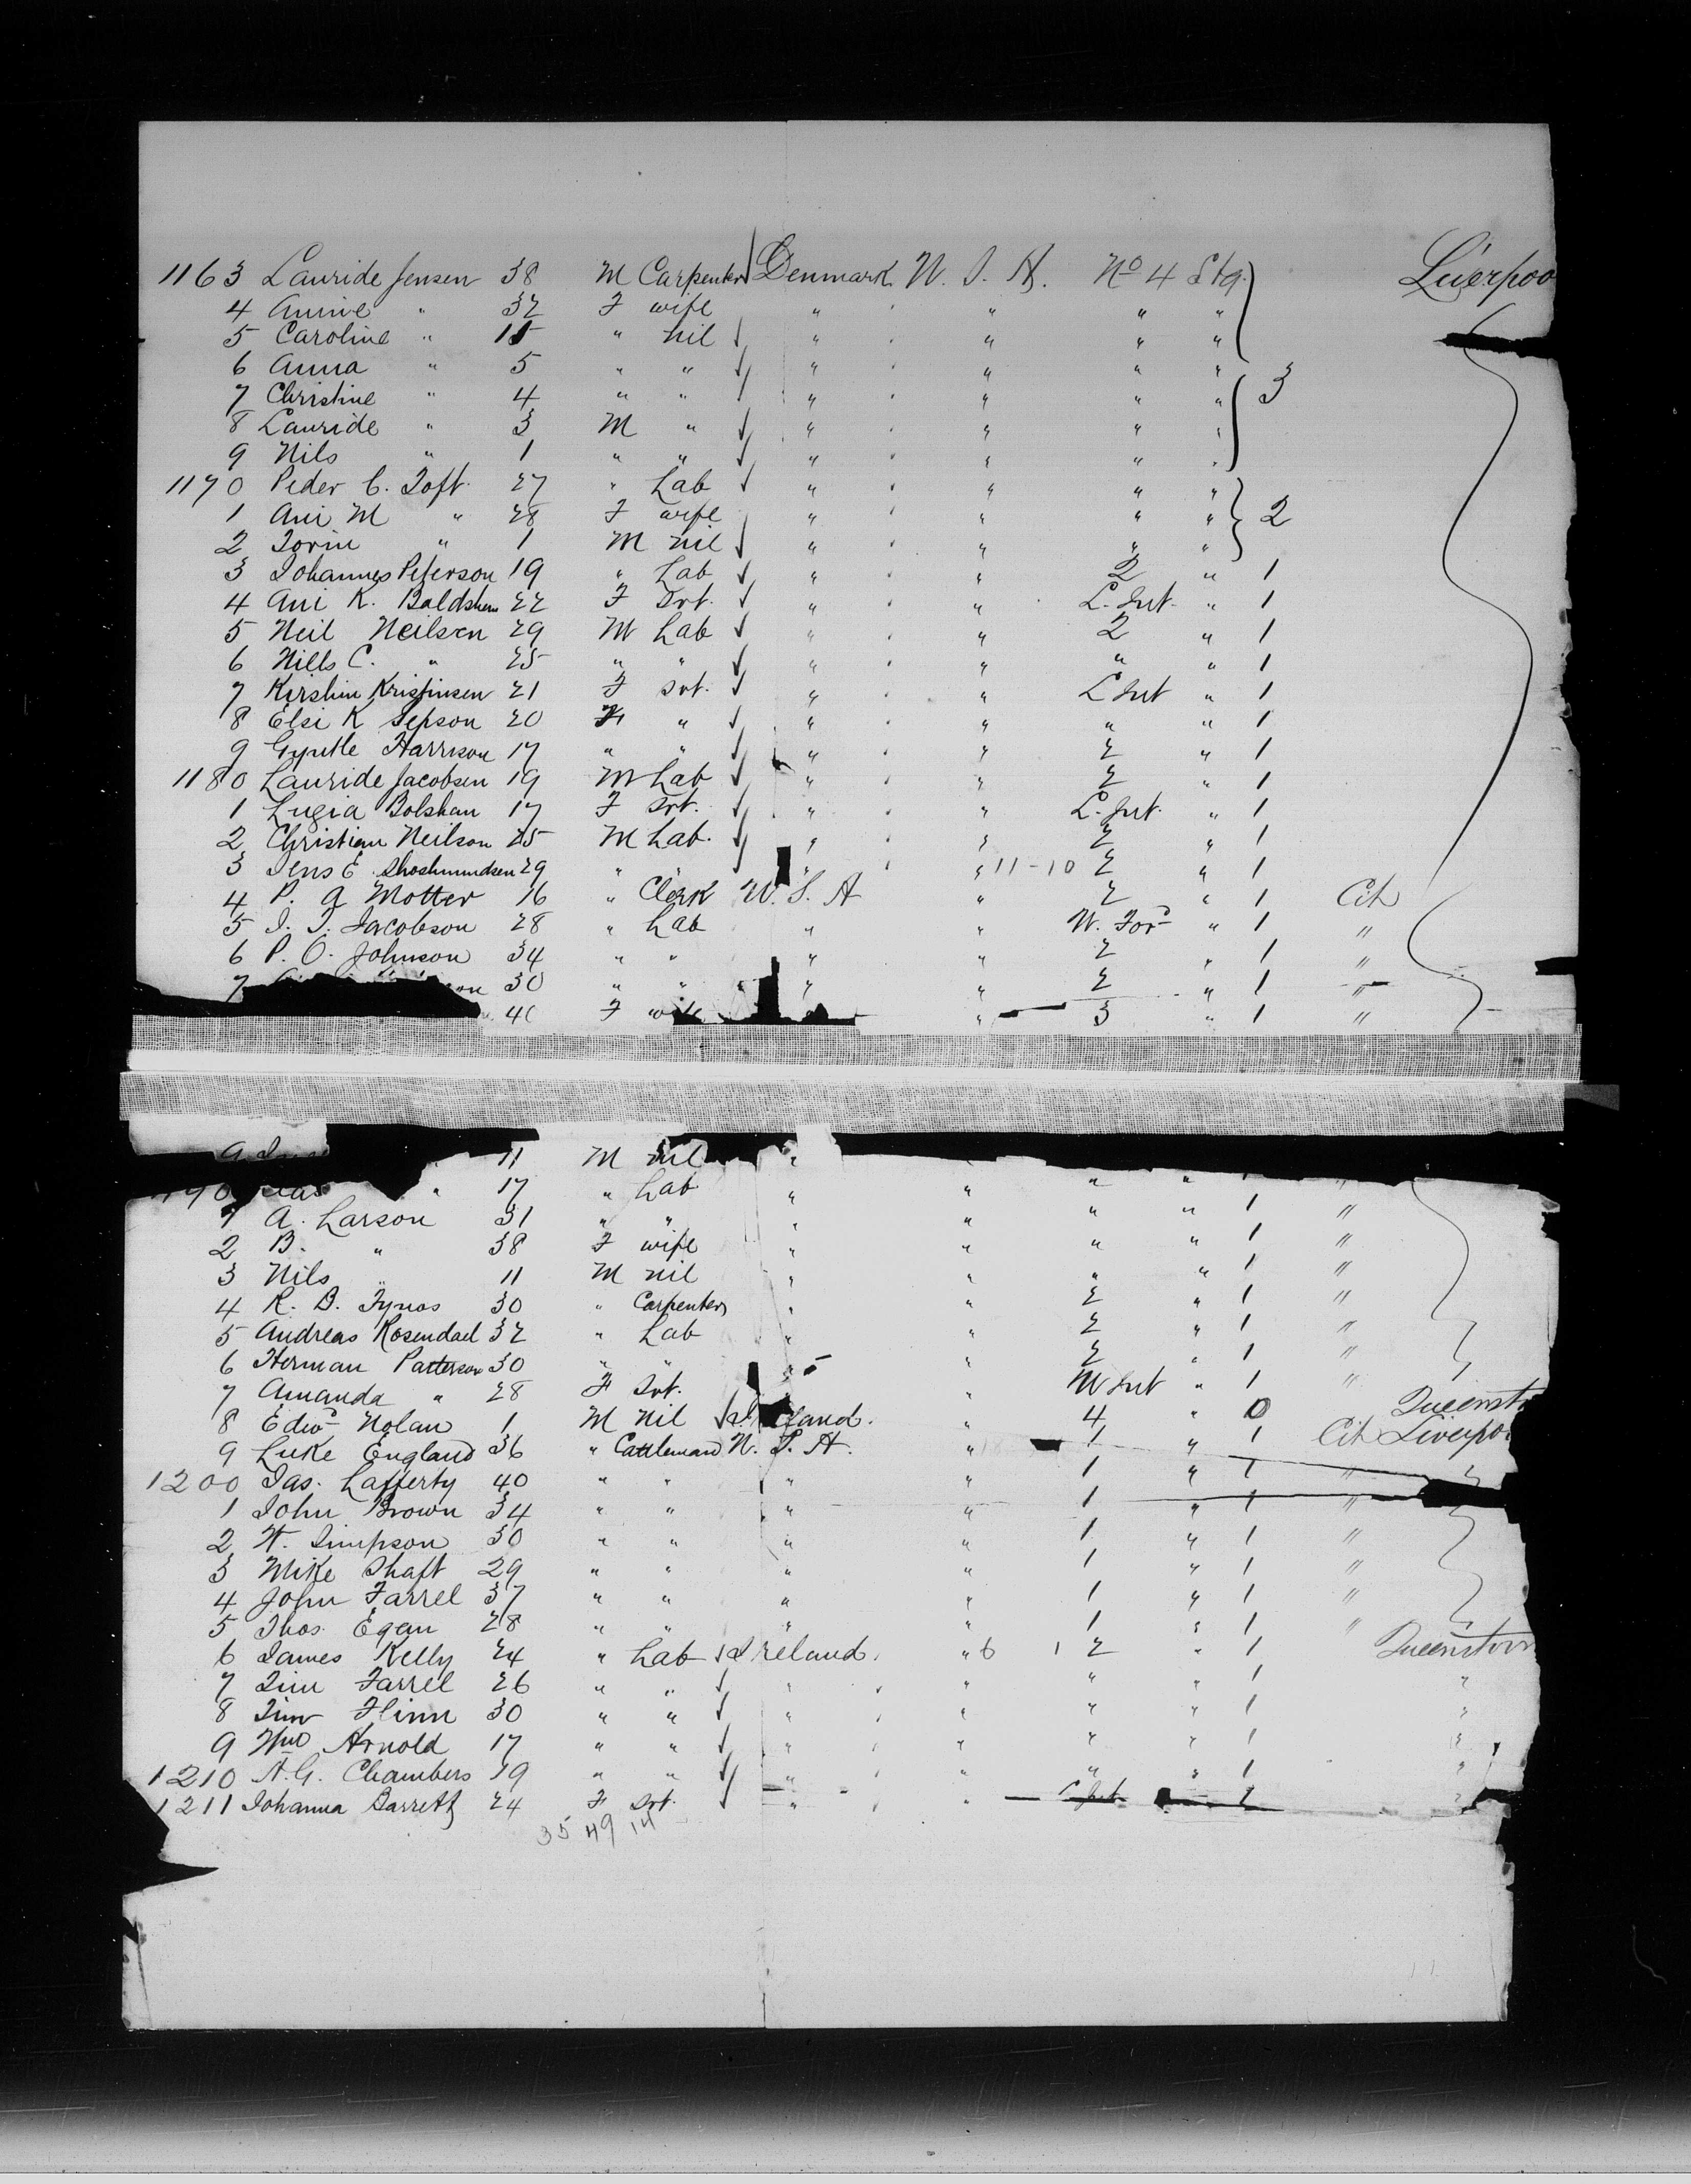 1163 Lauride Jensen 38 M Carpenter Denmark U. S. A. No 4 Stg. Liverpoo
4 Annie " 32 F wife " " " "
5 Caroline " 11 " nil " " " "
6 Anna " 5 " " " " " "
7 Christine " 4 " " " " " " 3
8 Lauride " 3 M " " " " "
9 Nils " 1 " " " " " "
1170 Peder C. Toft 27 " Lab " " " "
1 Ani M " 28 F wife " " " " 2
2 " 1 M nil " " " "
3 Johannes Peterson 19 " Lab " " 2 " 1
4 Ani K. 22 F Svt. " " L. Int. " 1
5 Neil Neilsen 29 M Lab " " 2 " 1
6 Nills C. " 25 " " " " " " 1
7 Kirshin Kristinsen 21 F Svt. " " L Int " 1
8 Elsi K Jepson 20 F " " " " " 1
9 Harrison 17 " " " " 2 " 1
1180 Lauride Jacobsen 19 M Lab " " 2 " 1
1 Lugia Bolshau 17 F Svt. " " L. Int. " 1
2 Christian Neilson 25 M Lab. " " 2 " 1
3 Jens E 29 " " " " 11-10 2 " 1
4 P. A Motter 16 " Clerk U. S. A " 2 " 1 Cit
5 J. J. Jacobson 28 " Lab " " W. For " 1 "
6 P. O. Johnson 34 " " " " 2 " 1 "
7 30 " " " " 2 " 1 "
F wife " 3 " 1 "
9 11 M nil "
17 " Lab " " " " "
1 A. Larson 31 " " " " " " 1 "
2 B. " 38 F wife " " " " 1 "
3 Nils " 11 M nil " " " " 1 "
4 K. B. Tynos 30 " Carpenter " " 2 " 1 "
5 Andreas Rosendael 32 " Lab " " 2 " 1 "
6 Herman Patterson 30 " " " " 2 " 1 "
7 Amanda " 28 F Svt. " M Int " 1 "
8 Edwd Nolan 1 M nil Ireland. " 4 " 0 Queensto
9 Luke England 36 " Cattleman U. S. A. " 1 " 1 Cit Liverpo
1200 Jas. Lafferty 40 " " " " 1 " 1 "
1 John Brown 34 " " " " 1 " 1 "
2 W. Simpson 30 " " " " 1 " 1 "
3 Mike Shaft 29 " " " " 1 " 1 "
4 John Farrel 37 " " " " 1 " 1 "
5 Thos. Egan 28 " " " " 1 " 1 "
6 James Kelly 24 " Lab Ireland. " 6 1 2 " 1 Queenstown
7 Jim Farrel 26 " " " " " " 1 "
8 Tim Flinn 30 " " " " " " 1 "
9 Wm Arnold 17 " " " " " " 1 "
1210 A. G. Chambers 19 " " " " " " 1 "
1211 Johanna Barrett 24 F Svt. " " L Int 1 "
35 49 14